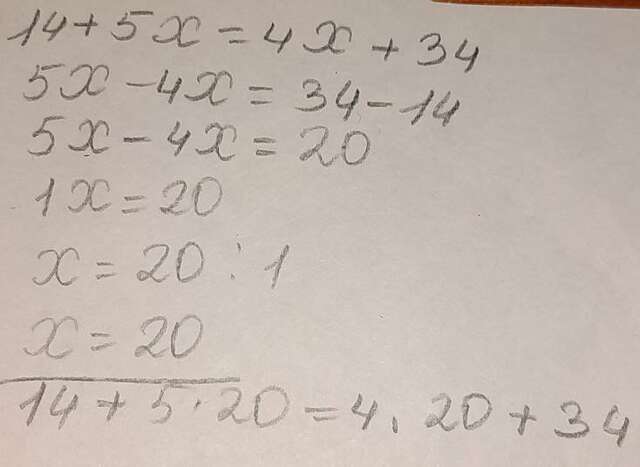 14 + 5x = 4x + 34
5x - 4x = 34 - 14
5x - 4x = 20
1x = 20
x = 20 : 1
x = 20
14 + 5 · 20 = 4 . 20 + 34